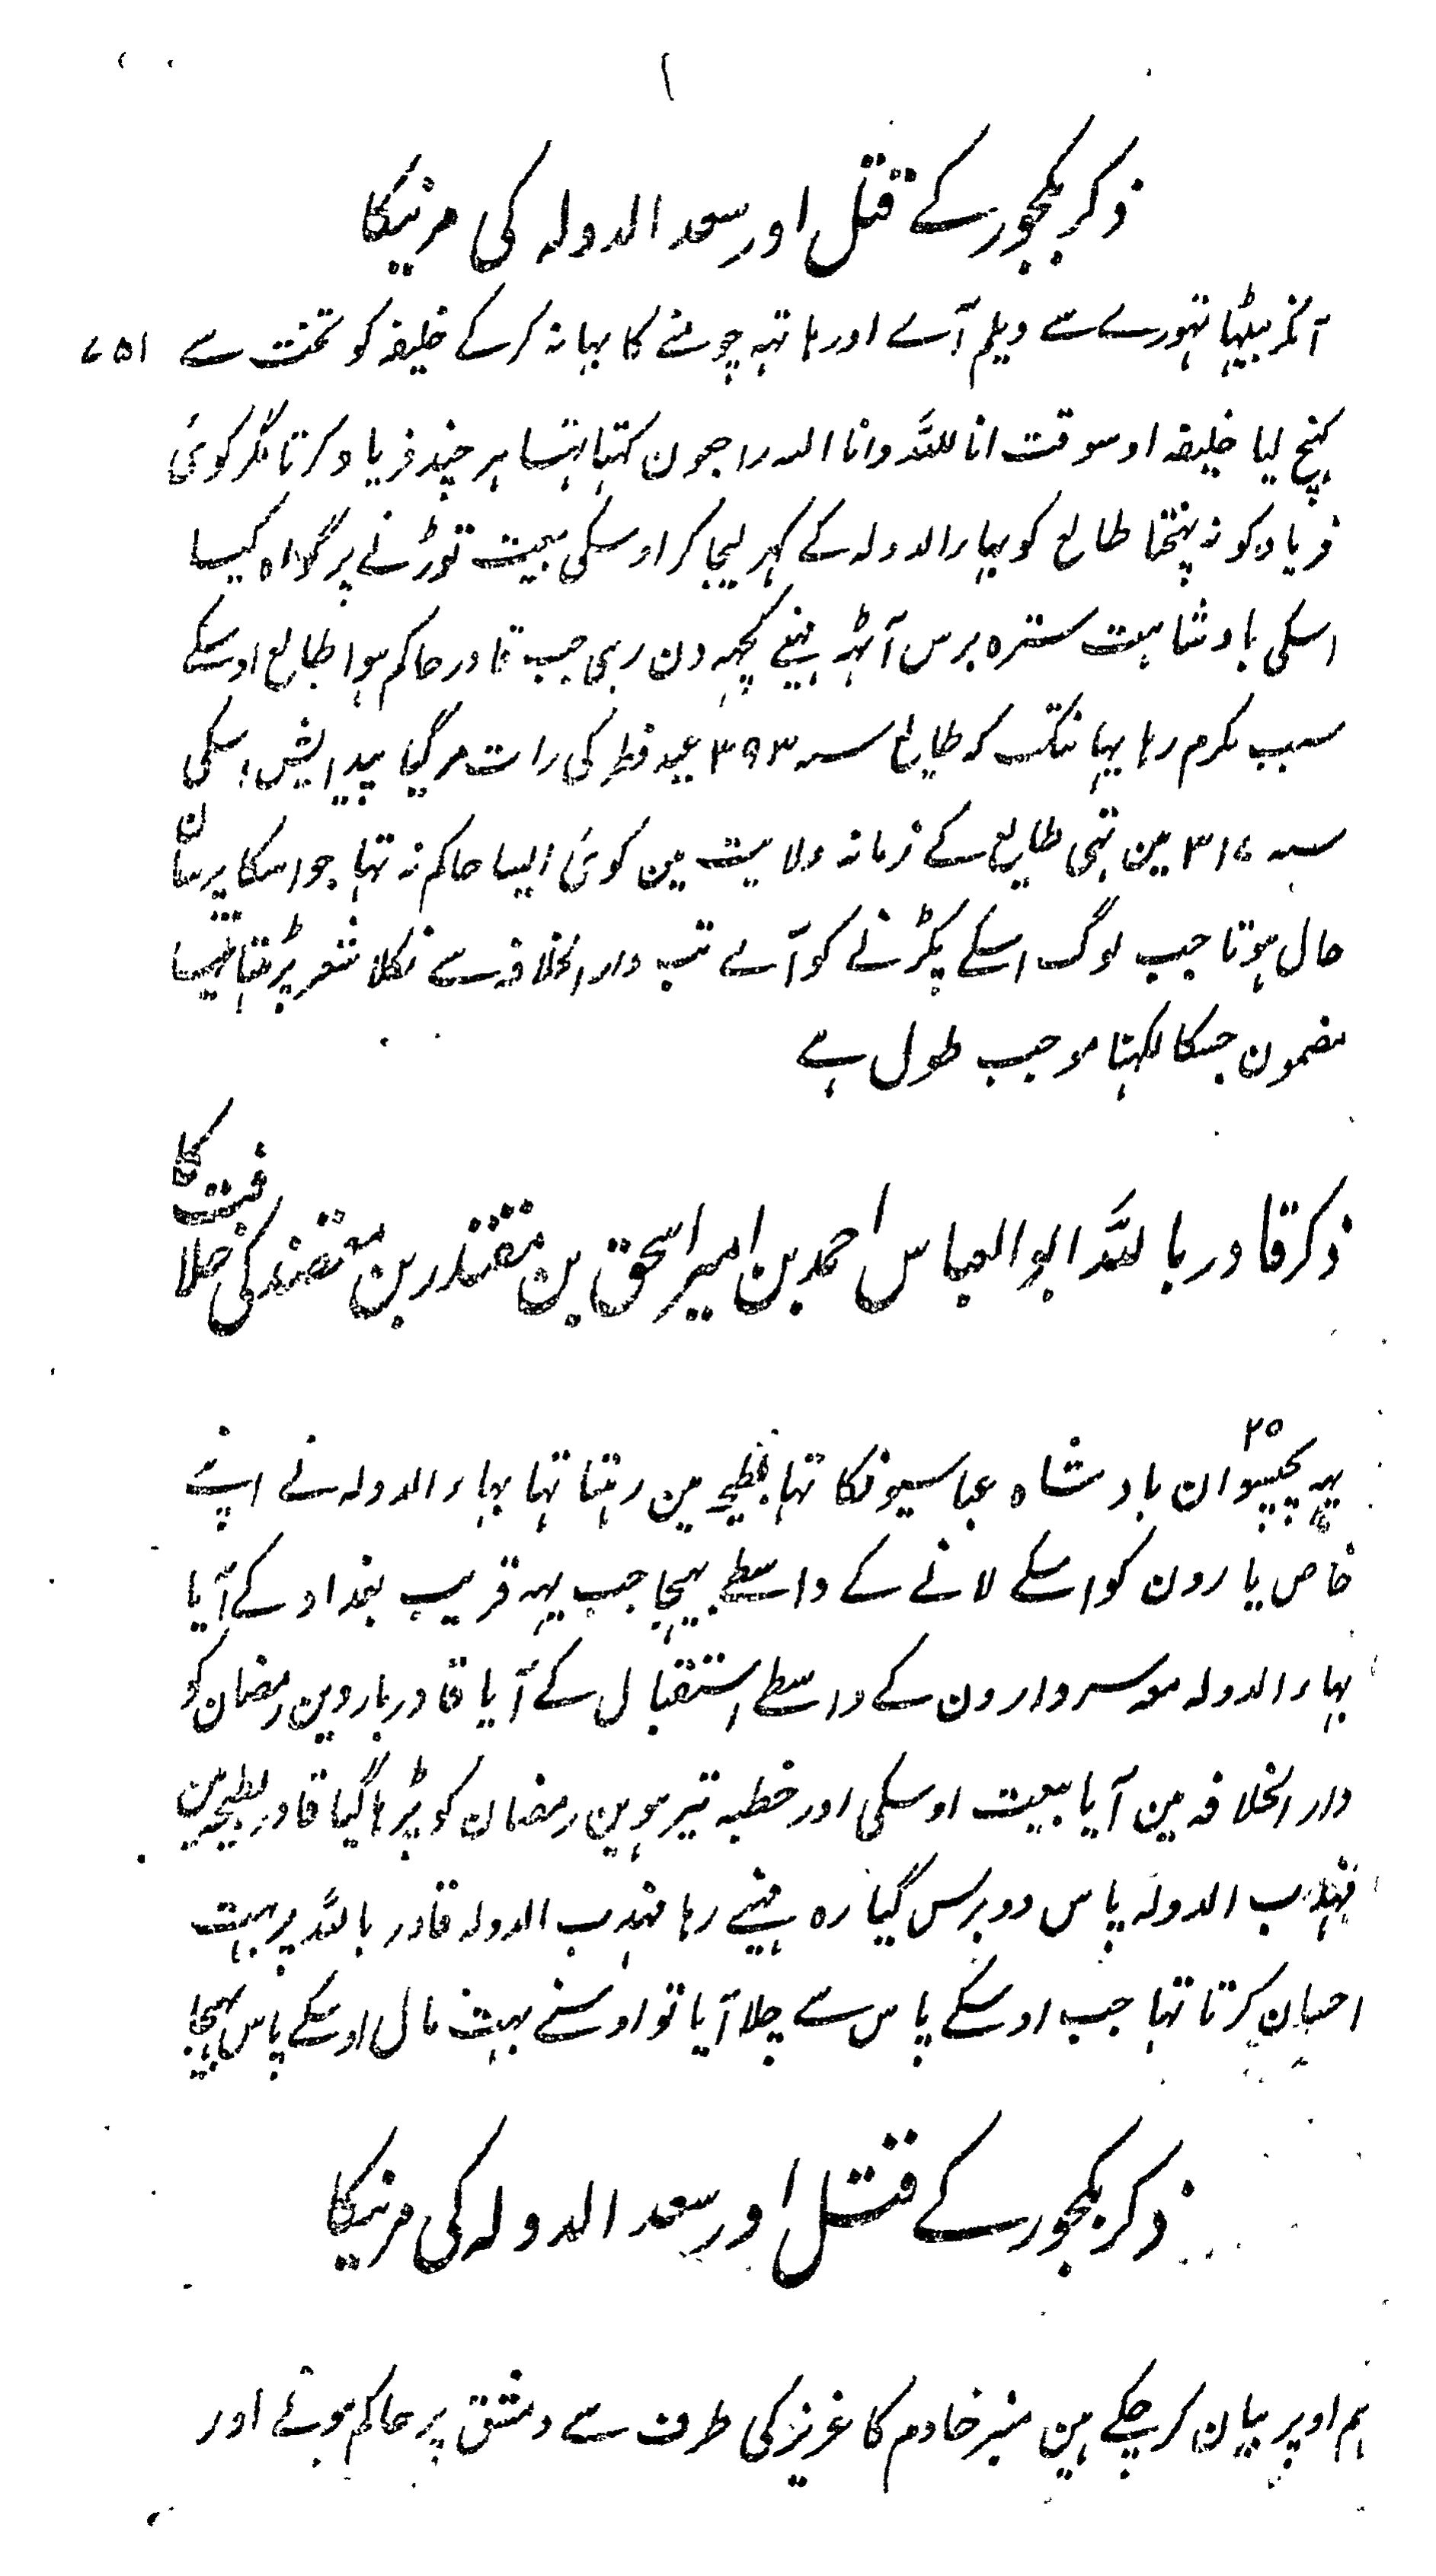 ذکر بکجور کے قتل اور سعد الدولہ کی مرنیکا
آنکر بیٹھا تہورے سے دیلم آے اور ہاتہہ چومنے کا بہانہ کرکے خلیفہ کو تخت سے ۷۵۱
کہنچ لیا خلیفہ اوسوقت انا للّٰہ وانا الیہ راجعون کہتا تہا ہر چند فریاد کرتا مگر کوئی
فریاد کو نہ پہنتچتا طالع کو بہاء الدولہ کے گہر لیجا کر اوسکی بیعت توڑنے پر گواہ کیا
اسکی بادشاہت سترہ برس آٹہہ مہینے کچہہ دن رہی جب قادر حاکم ہوا طالع اوسکے
سبب مکرم رہا یہانتک کہ طایع سنہ ۳۹۳ عید فطر کی رات مر گیا پیدایش اسکی
سنہ ۳۱۷ مین تہی طایع کے زمانہ ولایت مین کوئی ایسا حاکم نہ تہا جو اسکا پرسان
حال ہوتا جب لوگ اسکے پکڑنے کو آے تب دار الخلافہ سے نکلا شعر پڑہتا تہا
مضمون جسکا لکہنا موجب طول ہے
ذکر قادر باللّٰہ ابو العباس احمد بن امیر اسحق بن مقتدر بن معتضد کی خلافت کا
۲۵
یہہ پچیسوان بادشاہ عباسیونکا تہا بطیحہ مین رہتا تہا بہاء الدولہ نے اپنے
خاص یارون کو اسکے لانے کے واسطے بہیجا جب یہہ قریب بغداد کے آیا
بہاء الدولہ معہ سردارون کے واسطے استقبال کے آیا قادر باروین رمضان کو
دار الخلافہ مین آیا بیعت اوسکی اور خطبہ تیرہوین رمضان کو پڑہا گیا قادر بطیحہ مین
مہذب الدولہ پاس دو برس گیارہ مہینے رہا مہذب الدولہ قادر باللّٰہ پر بہت
احسان کرتا تہا جب اوسکے پاس سے چلا آیا تو اوسنے بہت مال اوسکے پاس بہیجا
ذکر بکجور کے قتل اور سعد الدولہ کی مرنیکا
ہم اوپر بیان کر چکے ہین منیر خادم کا عزیز کی طرف سے دمشق پر حاکم ہوئے اور